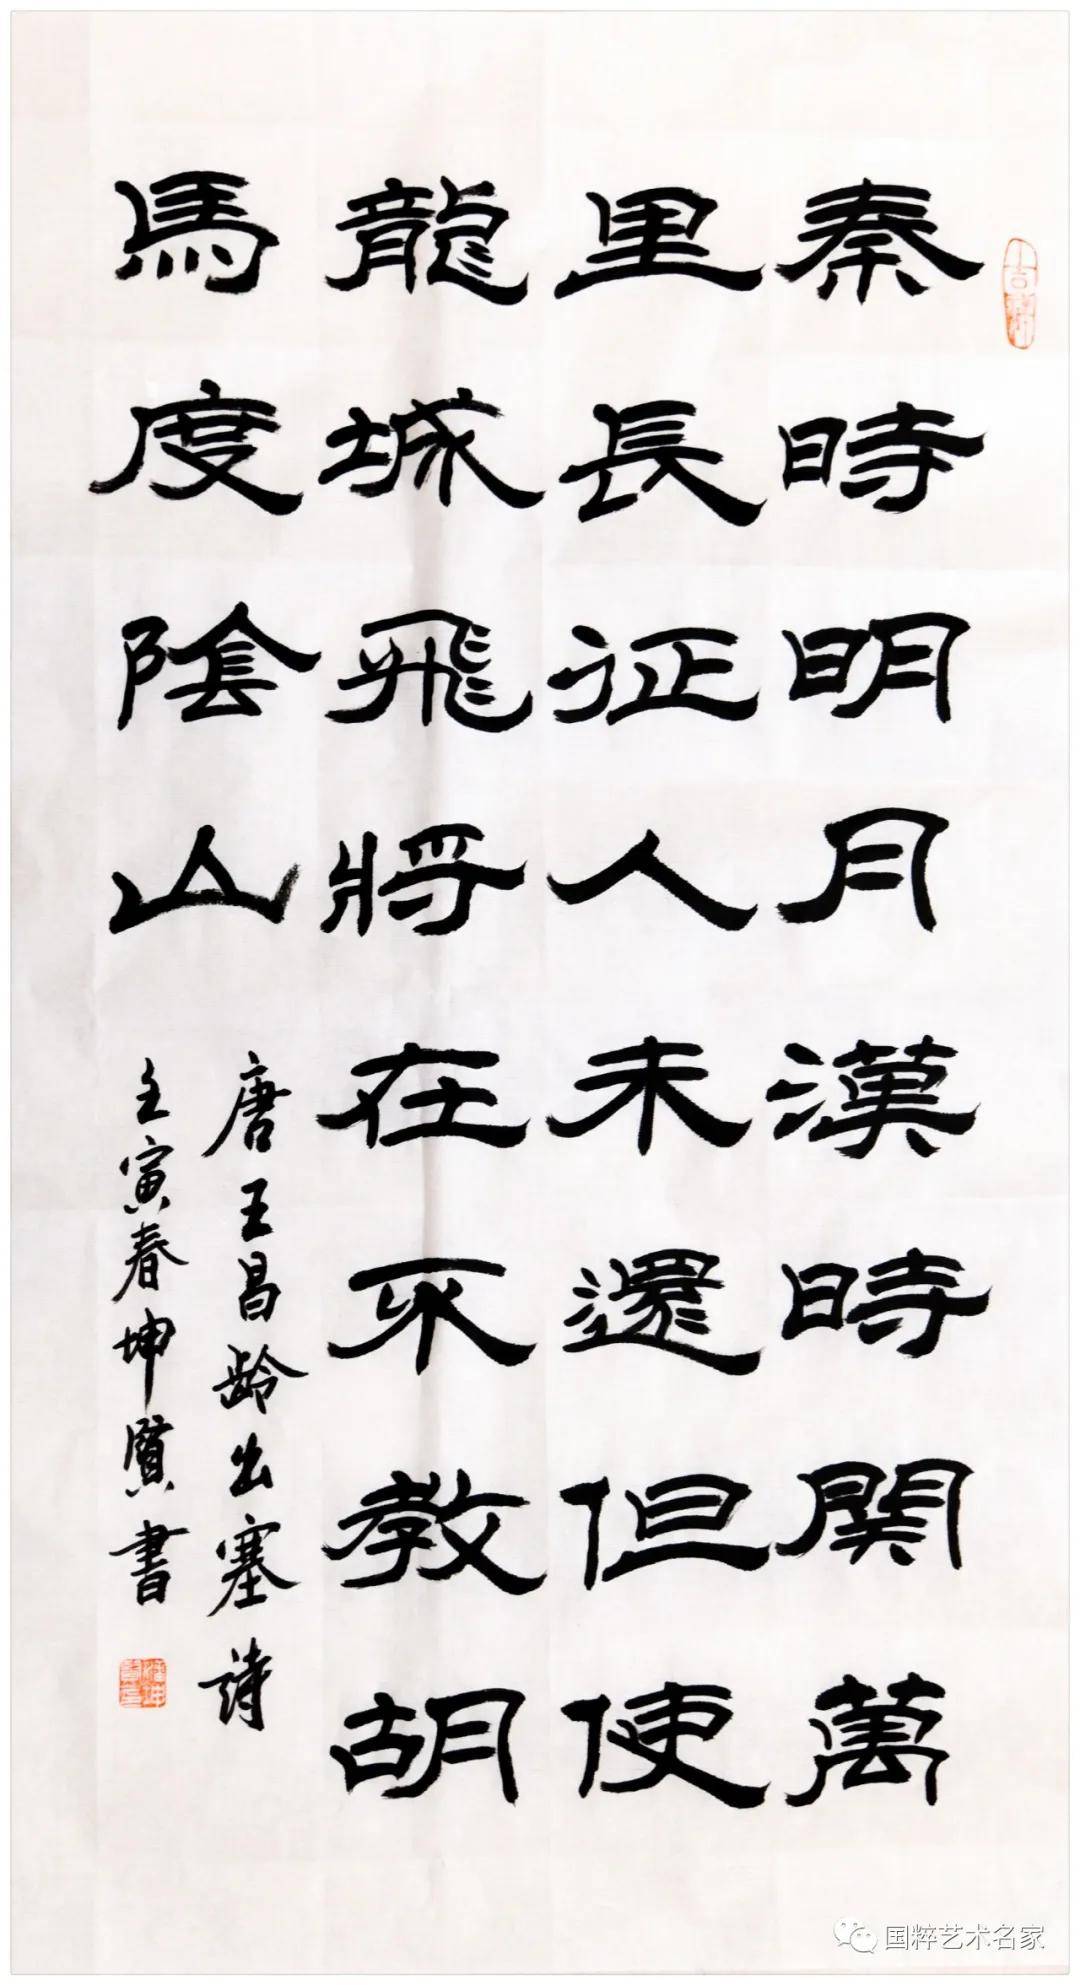 秦時明月漢時関萬
里長征人未還但使
龍城飛將在不教胡
馬度陰山
唐王昌龄出塞诗
壬寅春坤賢書
国粹艺术名家